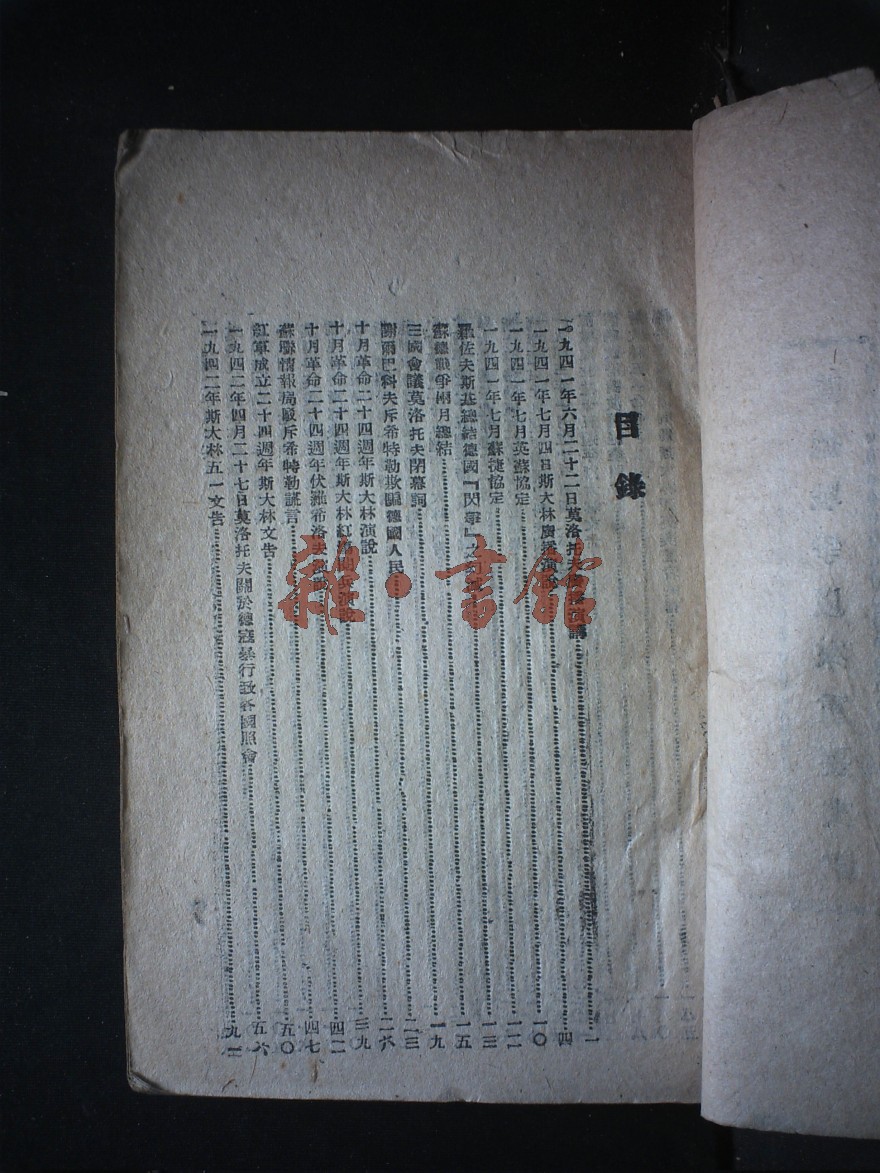 目錄
一九四一年六月二十二日莫洛托夫演講……一
一九四一年七月四日斯大林廣播演說……四
一九四一年七月英蘇協定……一〇
一九四一年七月蘇捷協定……一二
羅佐夫斯基總結德國『閃擊』之……一三
蘇德戰爭兩月總結……一五
三國會議莫洛托夫閉幕詞……一九
謝爾巴科夫斥希特勒欺騙德國人民……二三
十月革命二十四週年斯大林演說……二六
十月革命二十四週年斯大林紅場閱兵演說……三九
十月革命二十四週年伏羅希洛夫演說……四二
蘇聯情報局駁斥希特勒謊言……四七
紅軍成立二十四週年斯大林文告……五〇
一九四二年四月二十七日莫洛托夫關於德寇暴行致各國照會……五六
一九四二年斯大林五一文告……九一
雜·書館